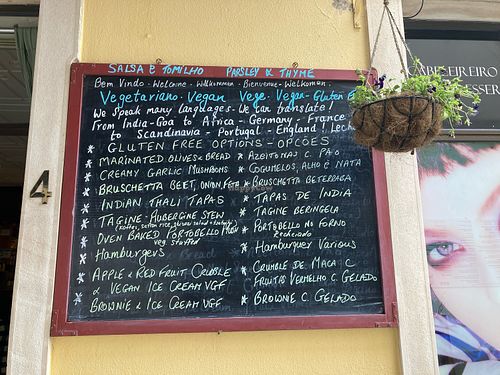 SALSA & TOMILHO PARSLEY & THYME
Bem Vindo · Welcome · Willkommen · Bienvenue · Welkomen
Vegetariano · Vegan Vege · Vegan · Gluten
We speak many languages · We can translate!
From India-Goa to Africa - Germany - France
to Scandinavia - Portugal - England!
* GLUTEN FREE OPTIONS - OPÇOES
* MARINATED OLIVES & BREAD * AZEITONAS C. PAO
* CREAMY GARLIC MUSHROOMS * COGUMELOS, ALHO & NATA
* BRUSCHETTA BEET, ONION, FETA * BRUSCHETTA BETERRAGA
* INDIAN THALI TAPAS * TAPAS DE INDIA
* TAGINE AUBERGINE STEW * TAGINE BERINGELA
* OVEN BAKED PORTOBELLO MUSH * PORTOBELLO NO FORNO
veg stuffed Recheiado
* Hamburgers * Hamburguer Various
* APPLE & RED FRUIT CRUMBLE * CRUMBLE DE MACA C
& VEGAN ICE CREAM VGF FRUTAS VERMELHO C GELADO
BROWNIE & ICE CREAM VGF * BROWNIE C. GELADO
4